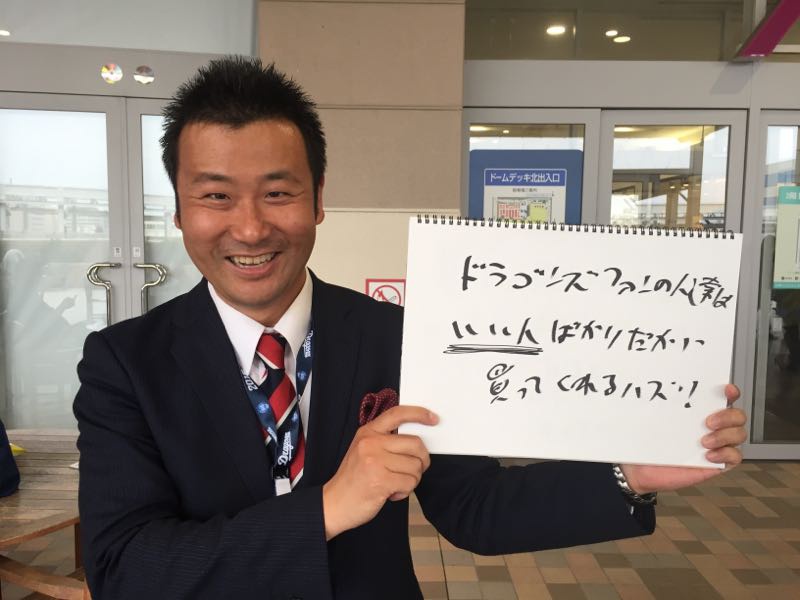 ドームデッキ北出入口
ドラゴンズファンの人達は
いい人ばかりだから
買ってくれるハズ!
Dragons